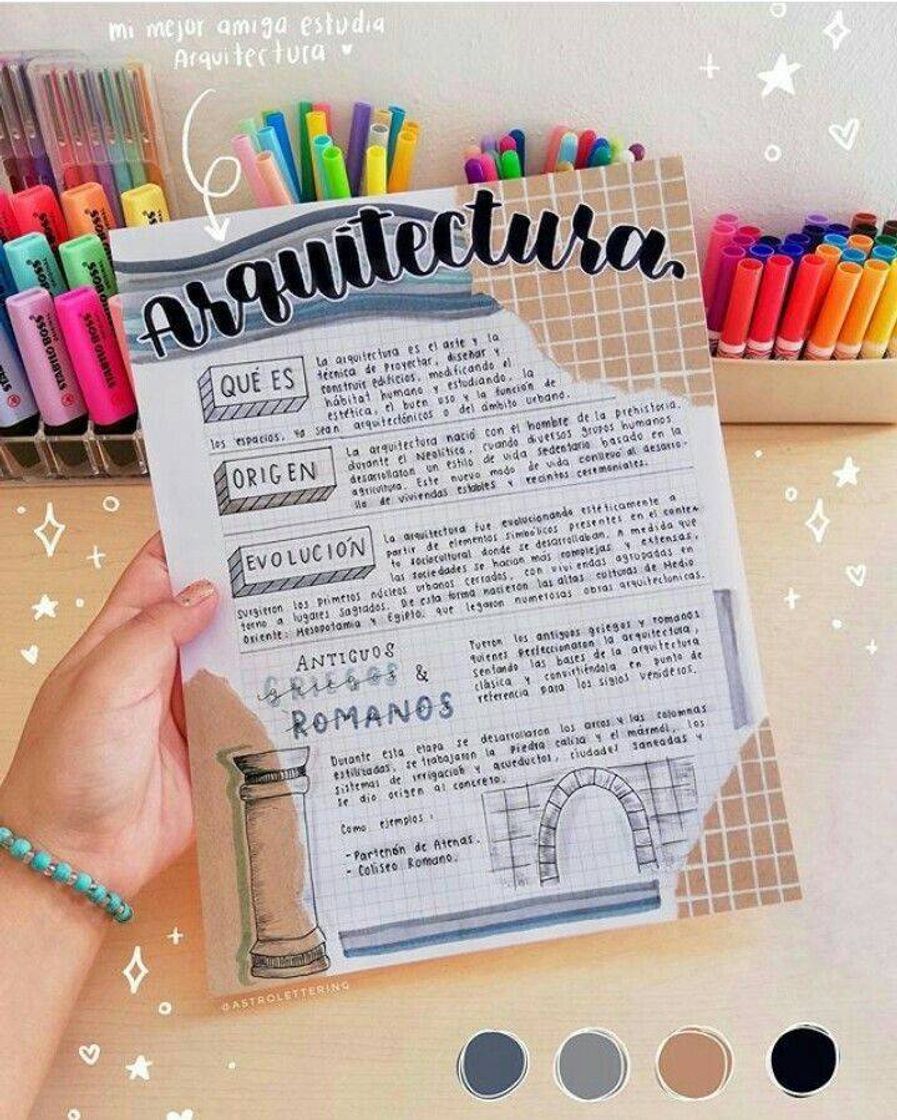 mi mejor amiga estudia
Arquitectura
Arquitectura
QUÉ ES
La arquitectura es el arte y la
técnica de proyectar, diseñar y
construir edificios, modificando el
hábitat humano y estudiando, la
estética, el buen uso y la función de
los espacios, ya sean arquitectónicos o del ámbito urbano.
ORIGEN
La arquitectura nació con el hombre de la prehistoria,
durante el Neolítico, cuando diversos grupos humanos
desarrollaron un estilo de vida sedentario basado en la
agricultura. Este nuevo modo de vida conllevó al desarro-
llo de viviendas estables y recintos ceremoniales.
EVOLUCIÓN
La arquitectura fue evolucionando estéticamente a
partir de elementos simbólicos presentes en el contex-
to sociocultural donde se desarrollaban, a medida que
las sociedades se hacían más complejas y extensas,
Surgieron los primeros núcleos urbanos cerrados, con viviendas agrupadas en
torno a lugares sagrados. De esta forma nacieron las altas culturas de Medio
Oriente: Mesopotamia y Egipto, que legaron numerosas obras arquitectónicas.
ANTIGUOS
GRIEGOS &
ROMANOS
Fueron los antiguos griegos y romanos
quienes perfeccionaron la arquitectura,
sentando las bases de la arquitectura
clásica y convirtiéndola en punto de
referencia para los siglos venideros.
Durante esta etapa se desarrollaron los arcos y las columnas
estilizadas, se trabajaron la piedra caliza y el mármol, los
sistemas de irrigación y acueductos, ciudades saneadas y
se dio origen al concreto.
Como ejemplos:
- Partenón de Atenas.
- Coliseo Romano.
@ASTROLETTERING
STABILO BOSS
STABILO BOSS
STABILO BOSS